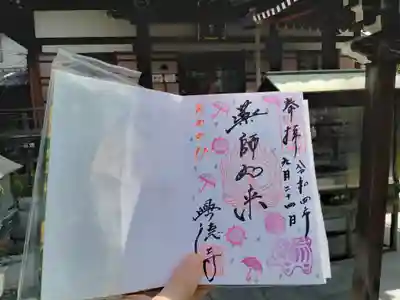 奉拝
令和四年
九月二十四日
薬師如来
興徳寺